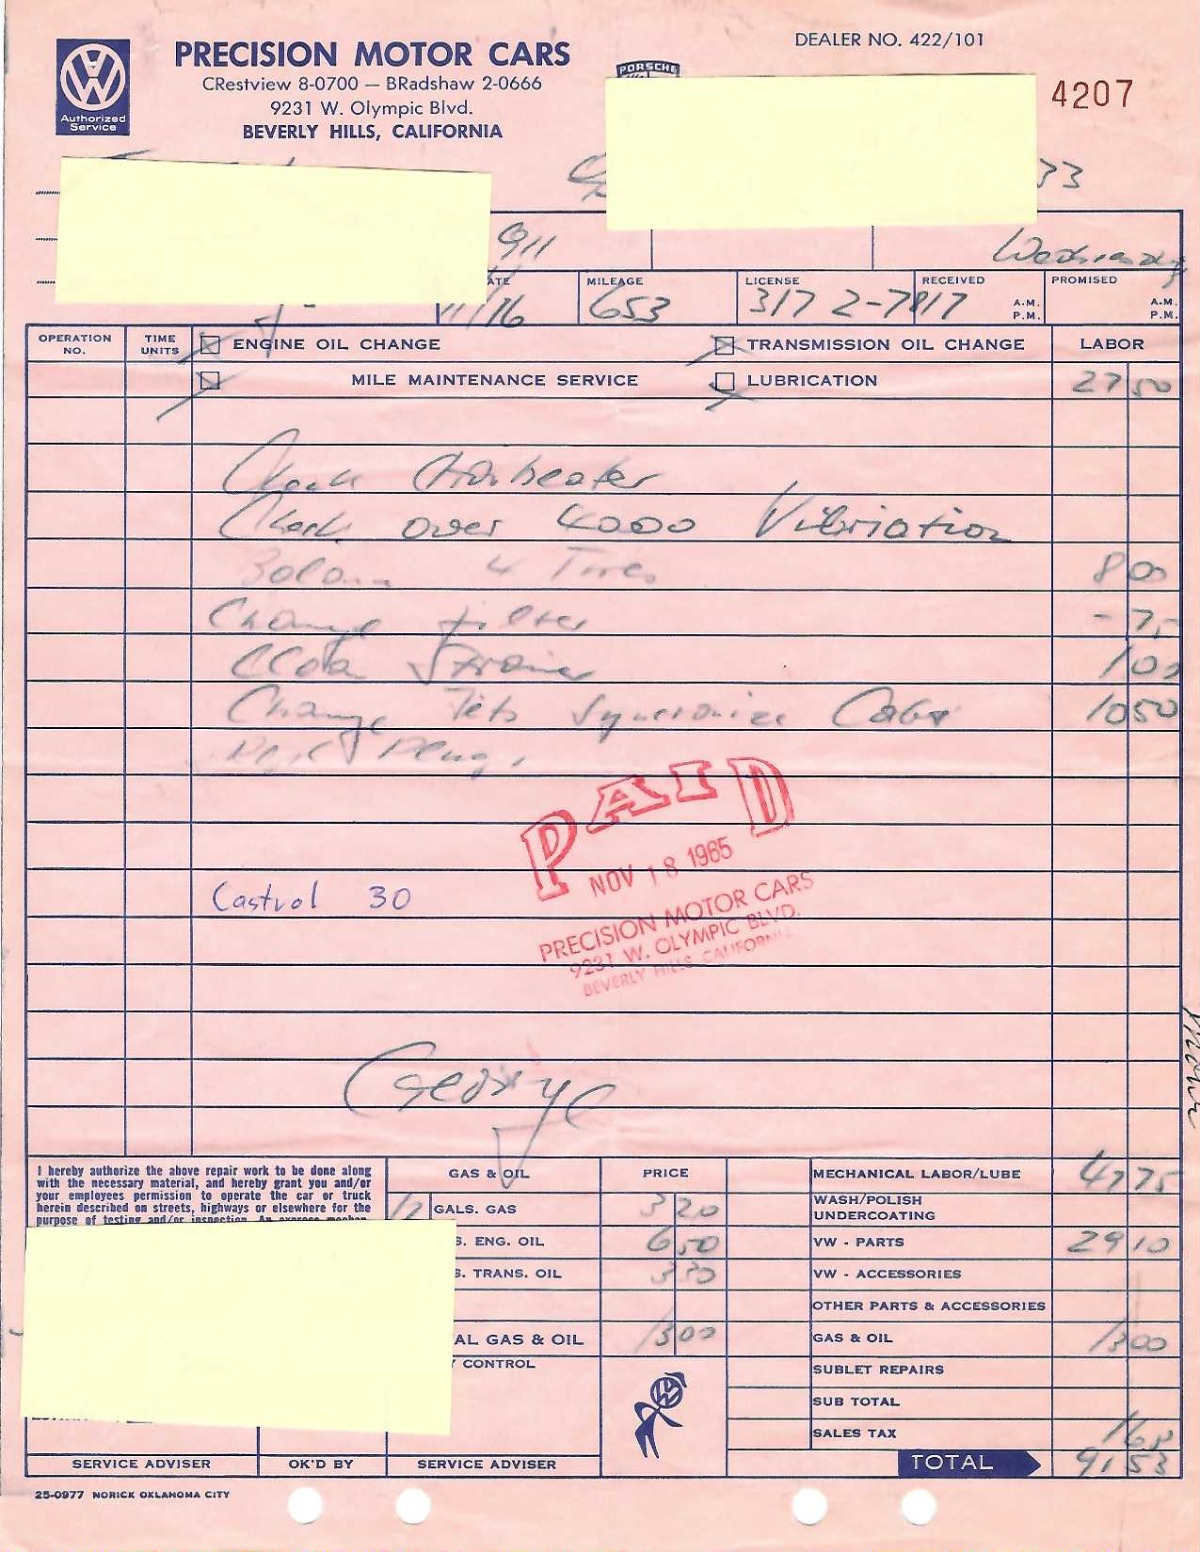 PRECISION MOTOR CARS
CRestview 8-0700 — BRadshaw 2-0666
9231 W. Olympic Blvd.
BEVERLY HILLS, CALIFORNIA
Authorized
Service
DEALER NO. 422/101
PORSCHE
4207
33
911
MILEAGE
LICENSE
RECEIVED
PROMISED
11/16
653
317 2-7817
A.M.
P.M.
A.M.
P.M.
OPERATION NO.
TIME UNITS
ENGINE OIL CHANGE
TRANSMISSION OIL CHANGE
LABOR
MILE MAINTENANCE SERVICE
LUBRICATION
27 50
Check
Check over 4000 Vibriation
4 Tires 8 00
Change filter - 75
Strainer 1 00
Change Jets Syncronize 10 50
PAID
NOV 18 1965
PRECISION MOTOR CARS
9231 W. OLYMPIC BLVD.
BEVERLY HILLS, CALIFORNIA
Castrol 30
George
I hereby authorize the above repair work to be done along
with the necessary material, and hereby grant you and/or
your employees permission to operate the car or truck
herein described on streets, highways or elsewhere for the
purpose of testing and/or inspection. An express
GAS & OIL
PRICE
GALS. GAS 3 20
ENG. OIL 6 50
TRANS. OIL 3 30
GAS & OIL 13 00
CONTROL
MECHANICAL LABOR/LUBE 47 75
WASH/POLISH
UNDERCOATING
VW - PARTS 29 10
VW - ACCESSORIES
OTHER PARTS & ACCESSORIES
GAS & OIL 13 00
SUBLET REPAIRS
SUB TOTAL
SALES TAX 1 68
TOTAL 91 53
SERVICE ADVISER
OK'D BY
SERVICE ADVISER
25-0977 NORICK OKLAHOMA CITY